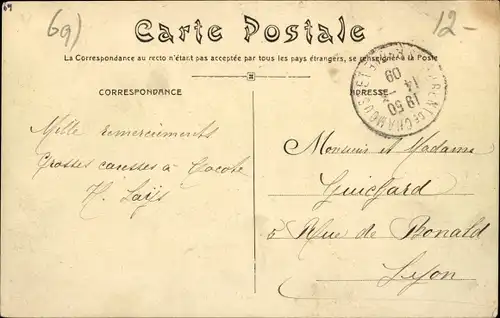 69)
12-
Carte Postale
La Correspondance au recto n'étant pas acceptée par tous les pays étrangers, se renseigner à la Poste
CORRESPONDANCE
ADRESSE
19 50
14
09
Mille remerciements
Grosses caresses à Cocote
H. Laÿs
Monsieur et Madame
Guichard
5 Rue de Bonald
Lyon